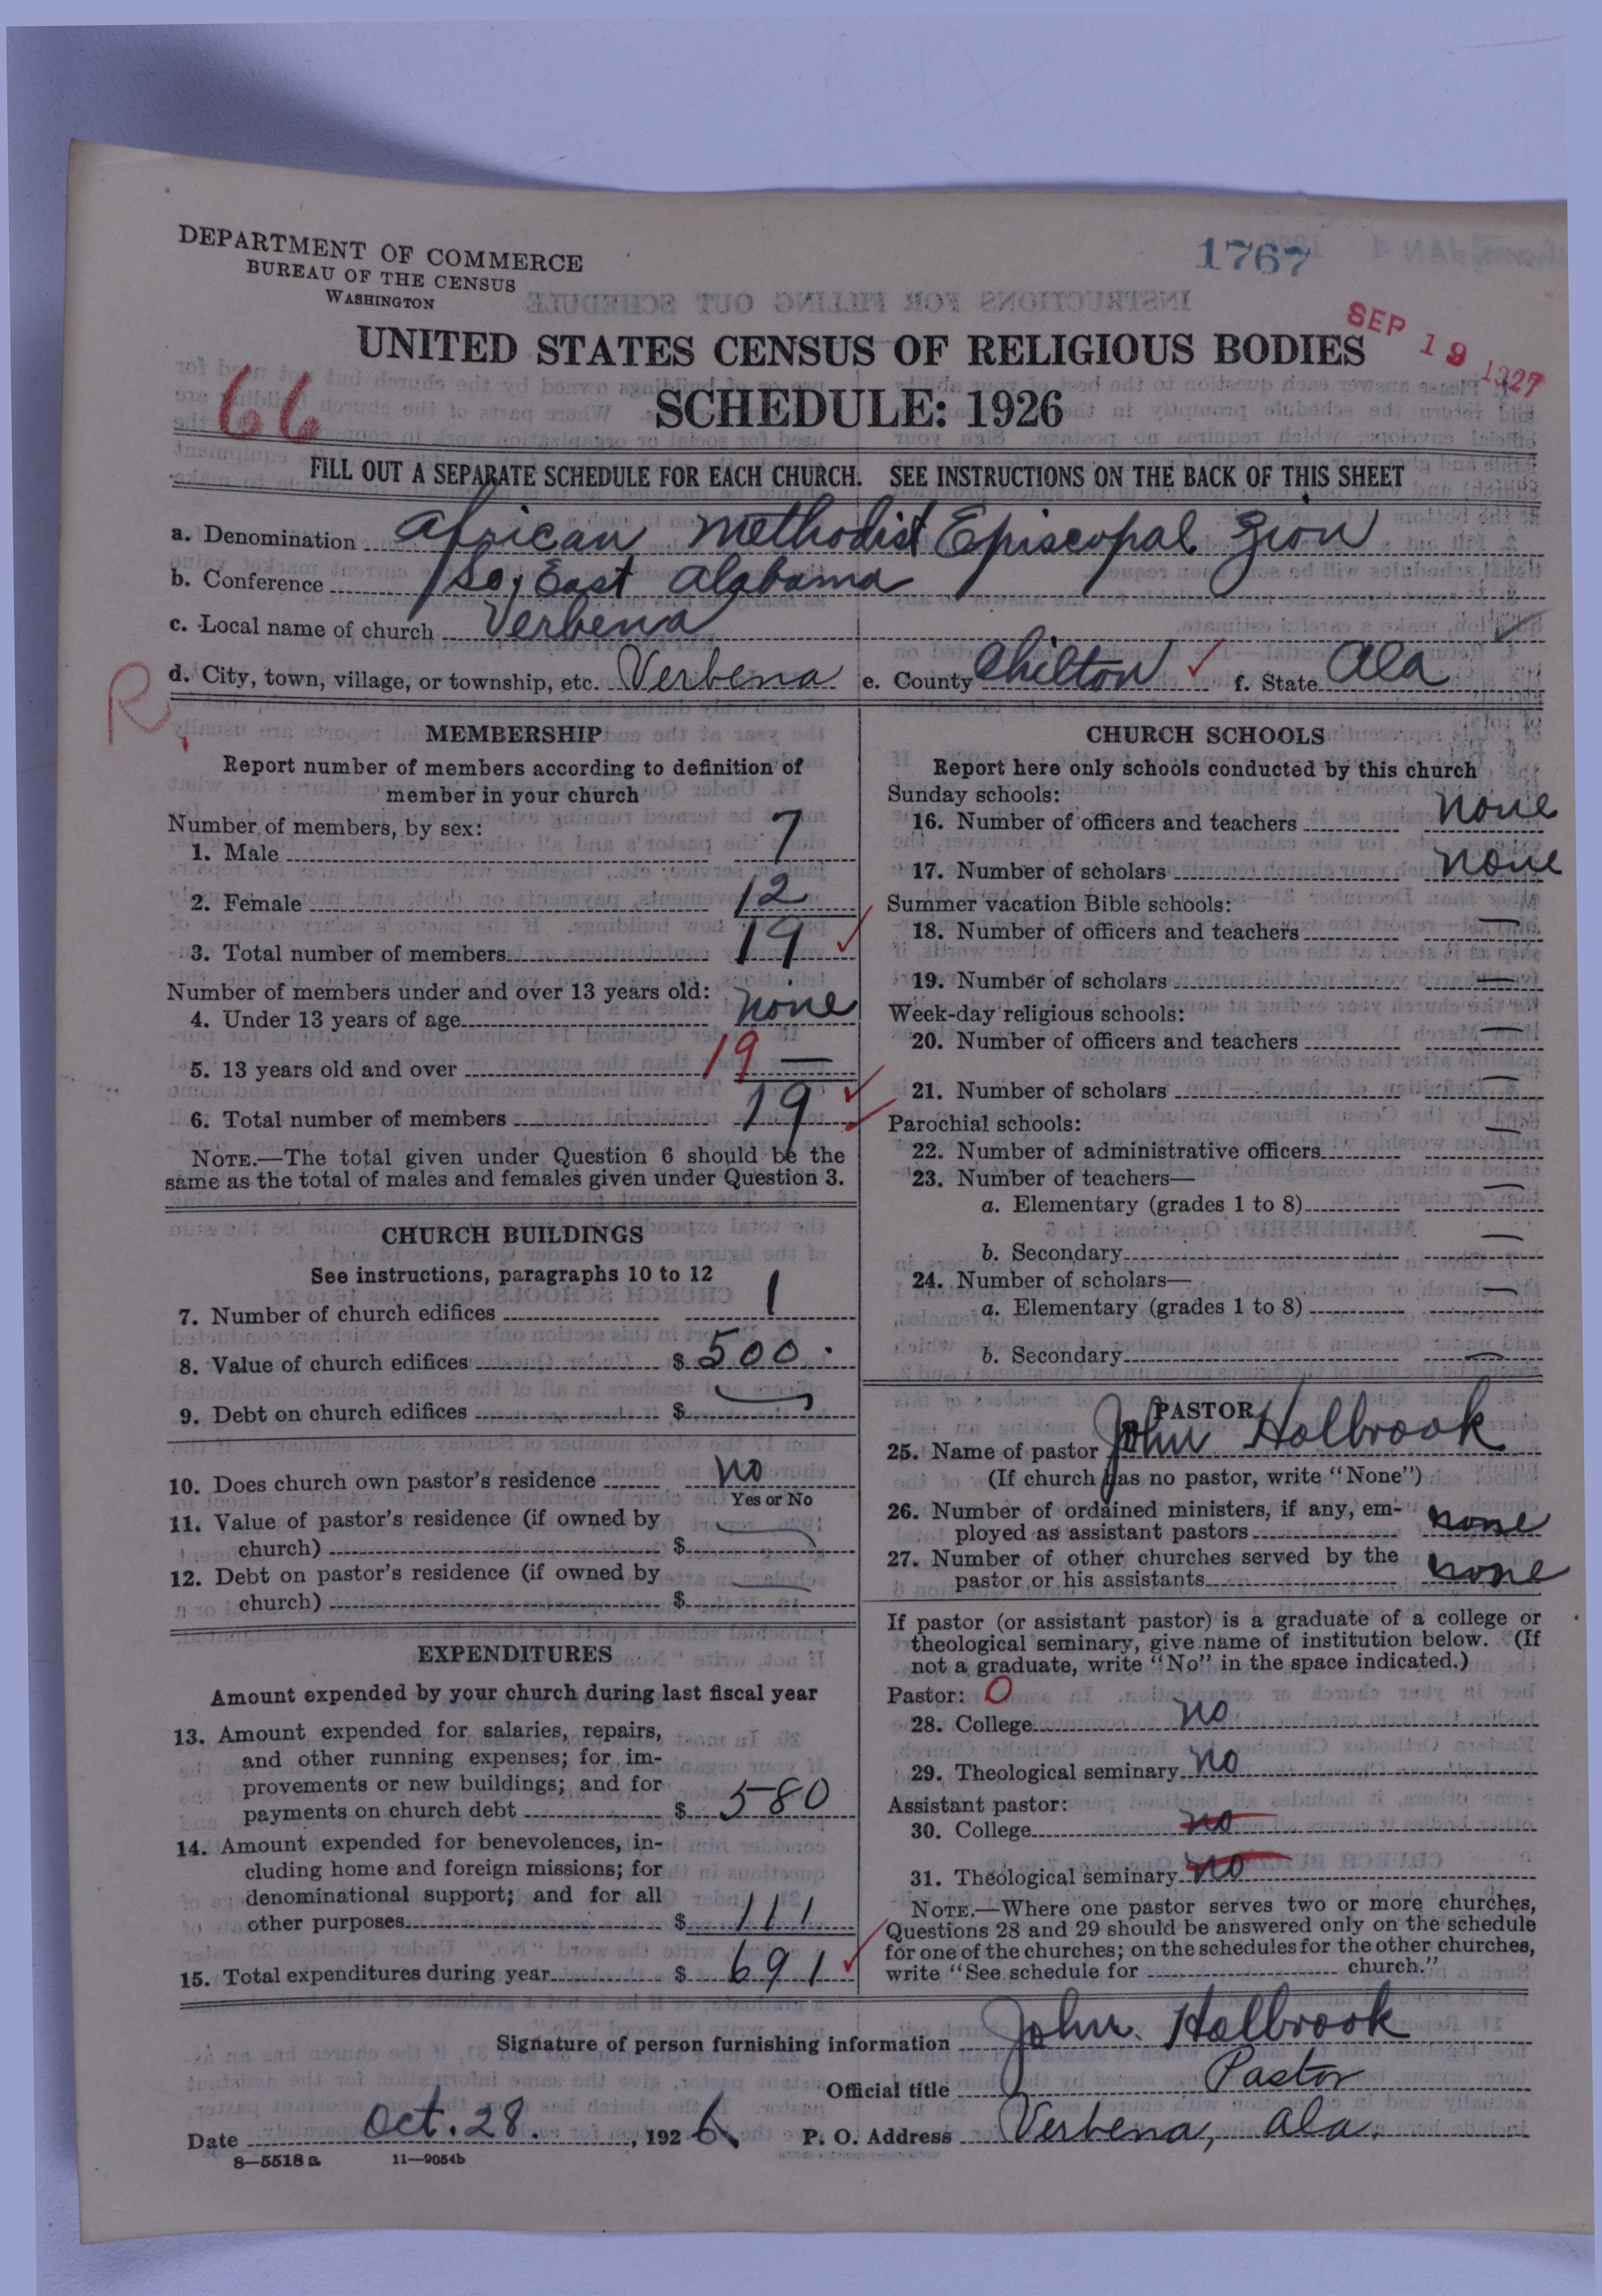 DEPARTMENT OF COMMERCE
BUREAU OF THE CENSUS
WASHINGTON
1767
SEP 19 1927
UNITED STATES CENSUS OF RELIGIOUS BODIES
66
SCHEDULE: 1926
FILL OUT A SEPARATE SCHEDULE FOR EACH CHURCH. SEE INSTRUCTIONS ON THE BACK OF THIS SHEET
a. Denomination African Methodist Episcopal Zion
b. Conference So. East Alabama
c. Local name of church Verbena
d. City, town, village, or township, etc. Verbena e. County Chilton ✓ f. State Ala
R,
MEMBERSHIP
Report number of members according to definition of
member in your church
Number of members, by sex:
1. Male 7
2. Female 12
3. Total number of members 19 ✓
Number of members under and over 13 years old:
4. Under 13 years of age none
5. 13 years old and over 19 —
6. Total number of members 19 ✓
NOTE.—The total given under Question 6 should be the
same as the total of males and females given under Question 3.
CHURCH BUILDINGS
See instructions, paragraphs 10 to 12
7. Number of church edifices 1
8. Value of church edifices $ 500.
9. Debt on church edifices $ —
10. Does church own pastor's residence no
Yes or No
11. Value of pastor's residence (if owned by
church) $ —
12. Debt on pastor's residence (if owned by
church) $ —
EXPENDITURES
Amount expended by your church during last fiscal year
13. Amount expended for salaries, repairs,
and other running expenses; for im-
provements or new buildings; and for
payments on church debt $ 580
14. Amount expended for benevolences, in-
cluding home and foreign missions; for
denominational support; and for all
other purposes $ 111
15. Total expenditures during year $ 691 ✓
CHURCH SCHOOLS
Report here only schools conducted by this church
Sunday schools:
16. Number of officers and teachers none
17. Number of scholars none
Summer vacation Bible schools:
18. Number of officers and teachers —
19. Number of scholars —
Week-day religious schools:
20. Number of officers and teachers —
21. Number of scholars —
Parochial schools:
22. Number of administrative officers —
23. Number of teachers—
a. Elementary (grades 1 to 8) —
b. Secondary —
24. Number of scholars—
a. Elementary (grades 1 to 8) —
b. Secondary —
PASTOR
25. Name of pastor John Holbrook
(If church has no pastor, write "None")
26. Number of ordained ministers, if any, em-
ployed as assistant pastors none
27. Number of other churches served by the
pastor or his assistants none
If pastor (or assistant pastor) is a graduate of a college or
theological seminary, give name of institution below. (If
not a graduate, write "No" in the space indicated.)
Pastor: O
28. College no
29. Theological seminary no
Assistant pastor:
30. College no
31. Theological seminary no
NOTE.—Where one pastor serves two or more churches,
Questions 28 and 29 should be answered only on the schedule
for one of the churches; on the schedules for the other churches,
write "See schedule for church."
Signature of person furnishing information John. Holbrook
Official title Pastor
Date Oct. 28., 1926. P. O. Address Verbena, Ala.
8—5518 a 11—9054b